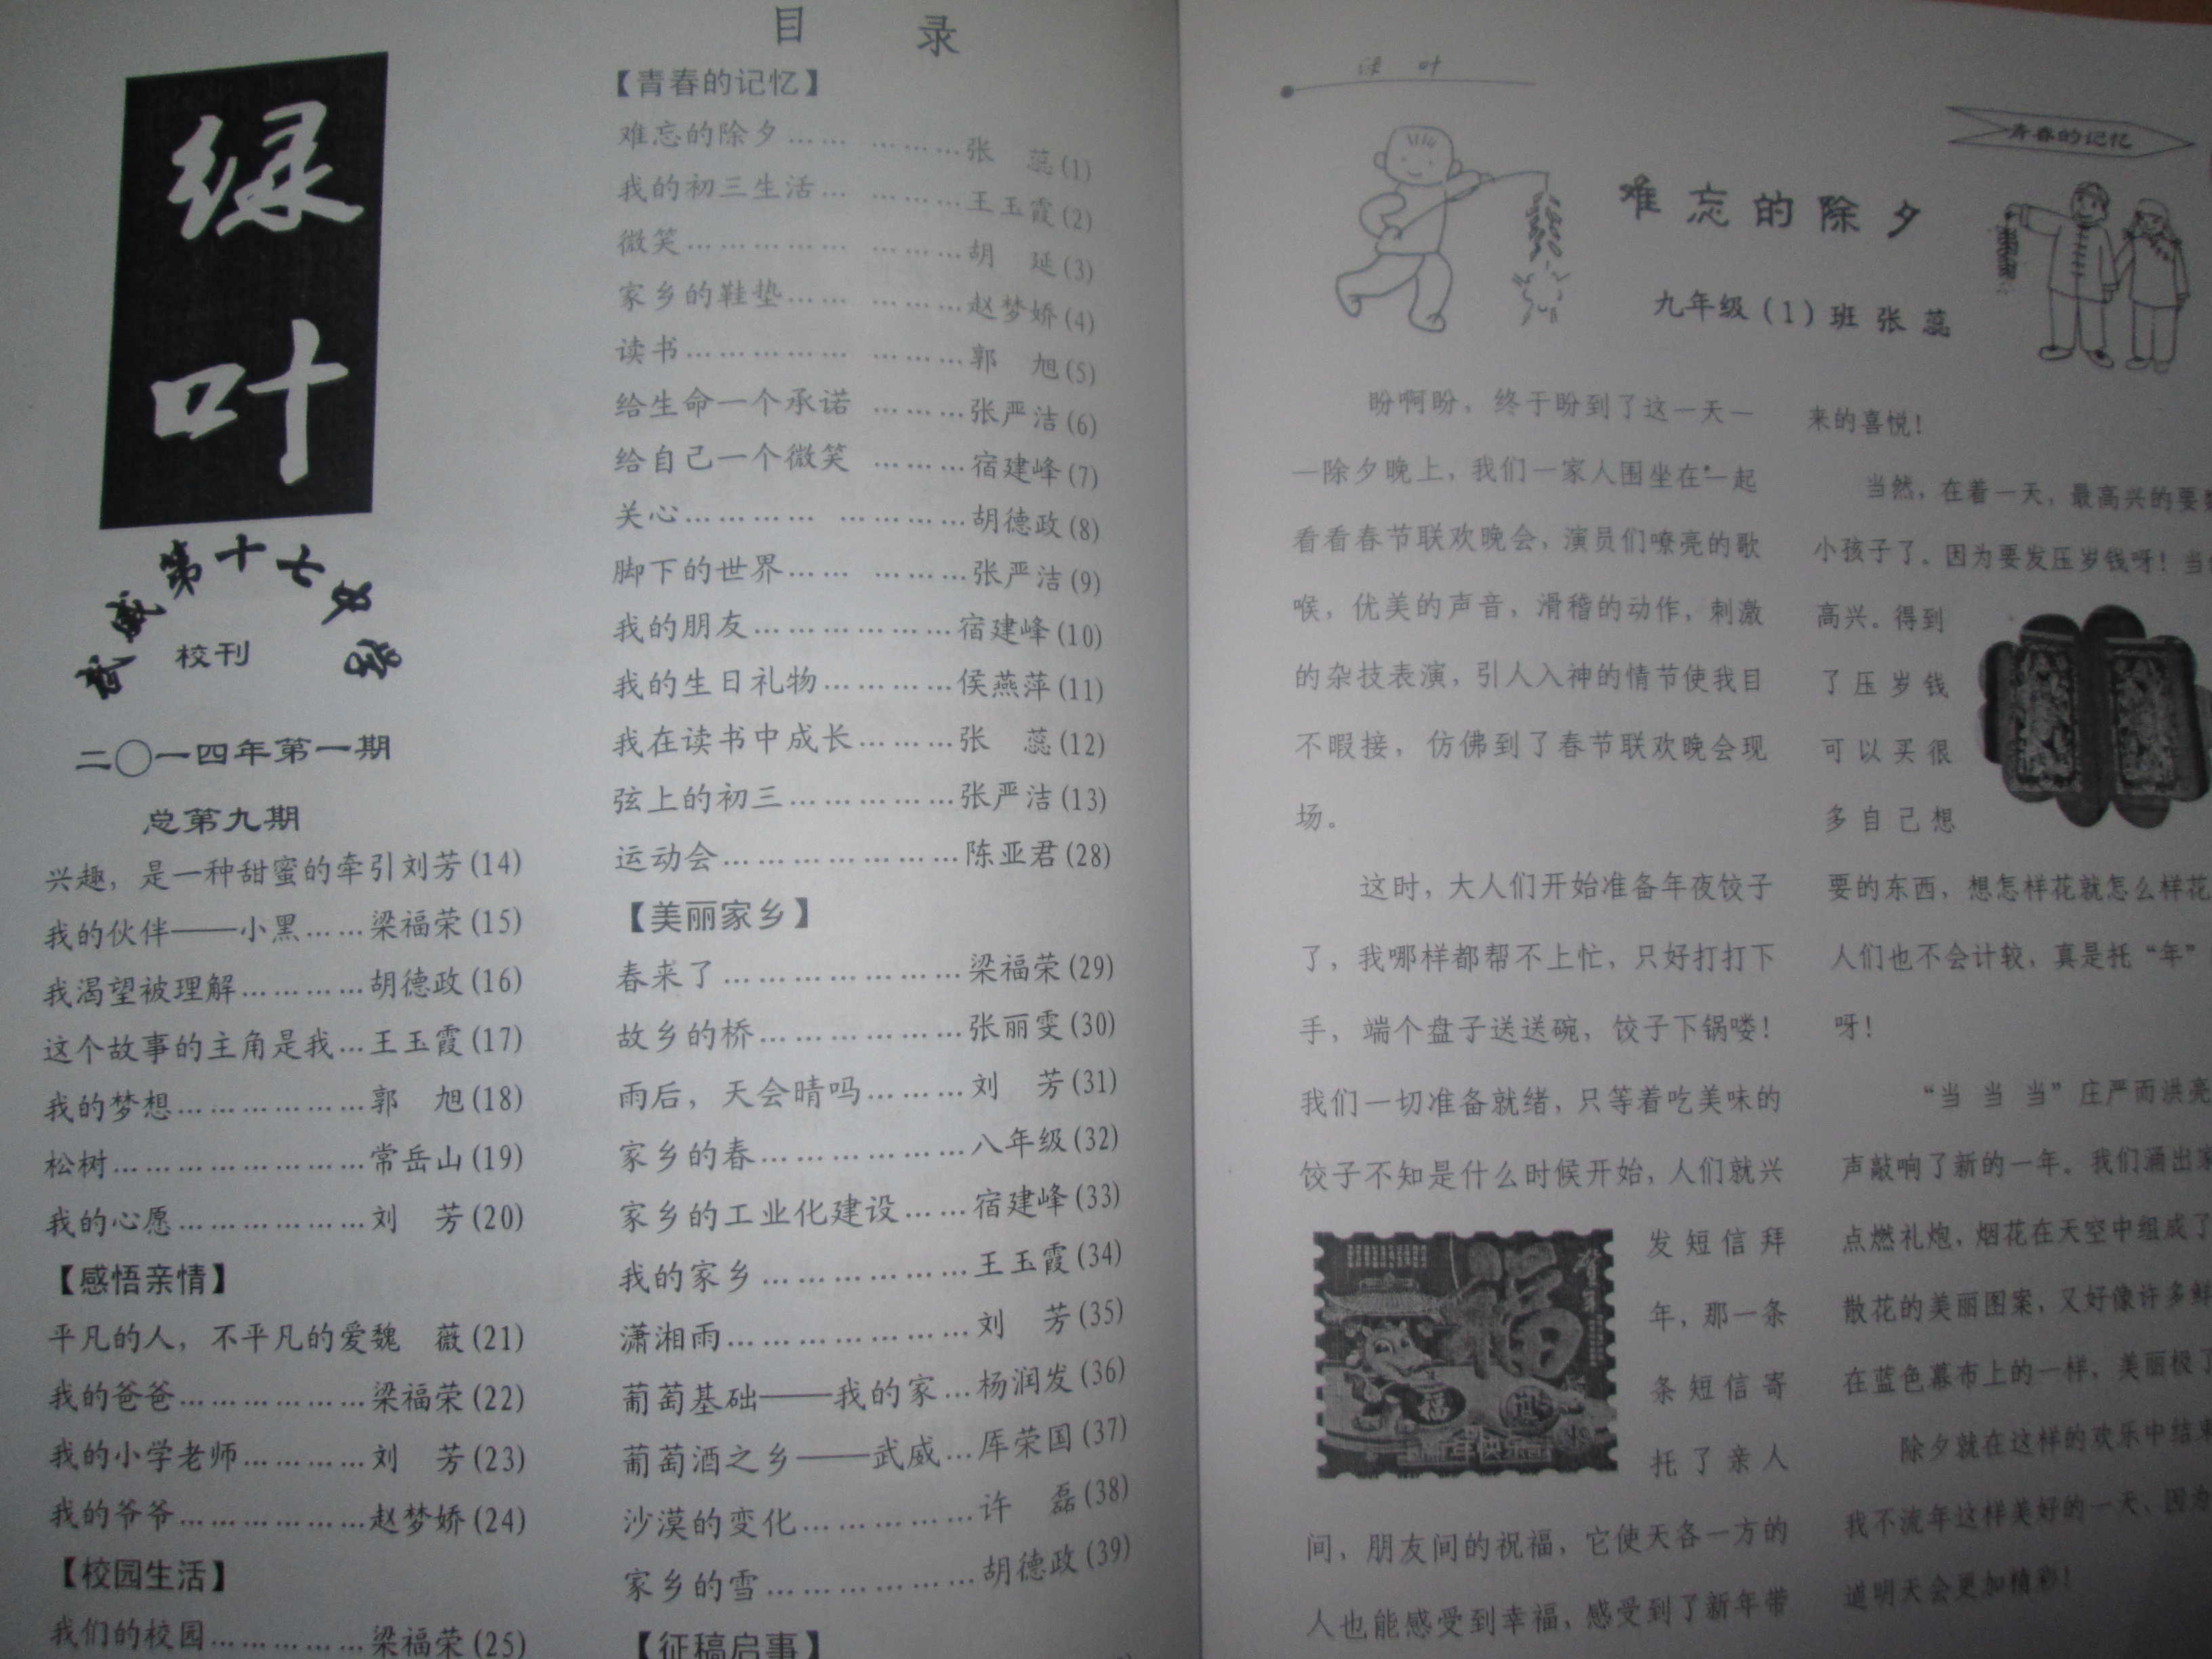 绿叶
武威第十七中学
校刊
二〇一四年第一期
总第九期
兴趣，是一种甜蜜的牵引刘芳(14)
我的伙伴——小黑……梁福荣(15)
我渴望被理解…………胡德政(16)
这个故事的主角是我…王玉霞(17)
我的梦想………………郭 旭(18)
松树……………………常岳山(19)
我的心愿………………刘 芳(20)
【感悟亲情】
平凡的人，不平凡的爱魏 薇(21)
我的爸爸………………梁福荣(22)
我的小学老师…………刘 芳(23)
我的爷爷………………赵梦娇(24)
【校园生活】
我们的校园……………梁福荣(25)
目 录
【青春的记忆】
难忘的除夕…… ………张 蕊(1)
我的初三生活… ………王玉霞(2)
微笑…………… ………胡 延(3)
家乡的鞋垫…… ………赵梦娇(4)
读书…………… ………郭 旭(5)
给生命一个承诺 ………张严洁(6)
给自己一个微笑 ………宿建峰(7)
关心………… …………胡德政(8)
脚下的世界…… ………张严洁(9)
我的朋友………………宿建峰(10)
我的生日礼物…………侯燕萍(11)
我在读书中成长………张 蕊(12)
弦上的初三……………张严洁(13)
运动会…………………陈亚君(28)
【美丽家乡】
春来了…………………梁福荣(29)
故乡的桥………………张丽雯(30)
雨后，天会晴吗………刘 芳(31)
家乡的春………………八年级(32)
家乡的工业化建设……宿建峰(33)
我的家乡………………王玉霞(34)
潇湘雨…………………刘 芳(35)
葡萄基础——我的家…杨润发(36)
葡萄酒之乡——武威…厍荣国(37)
沙漠的变化……………许 磊(38)
家乡的雪………………胡德政(39)
【征稿启事】
绿 叶
青春的记忆
难忘的除夕
九年级(1)班 张 蕊
盼啊盼，终于盼到了这一天—
—除夕晚上，我们一家人围坐在一起
看看春节联欢晚会，演员们嘹亮的歌
喉，优美的声音，滑稽的动作，刺激
的杂技表演，引人入神的情节使我目
不暇接，仿佛到了春节联欢晚会现
场。
这时，大人们开始准备年夜饺子
了，我哪样都帮不上忙，只好打打下
手，端个盘子送送碗，饺子下锅喽！
我们一切准备就绪，只等着吃美味的
饺子不知是什么时候开始，人们就兴
发短信拜
年，那一条
条短信寄
托了亲人
福
间，朋友间的祝福，它使天各一方的
人也能感受到幸福，感受到了新年带
来的喜悦！
当然，在着一天，最高兴的要
小孩子了。因为要发压岁钱呀！当
高兴。得到
了压岁钱
可以买很
多自己想
要的东西，想怎样花就怎么样花
人们也不会计较，真是托“年”
呀！
“当 当 当”庄严而洪亮
声敲响了新的一年。我们涌出
点燃礼炮，烟花在天空中组成了
散花的美丽图案，又好像许多鲜
在蓝色幕布上的一样，美丽极了
除夕就在这样的欢乐中结束
我不流年这样美好的一天、因为
道明天会更加精彩！